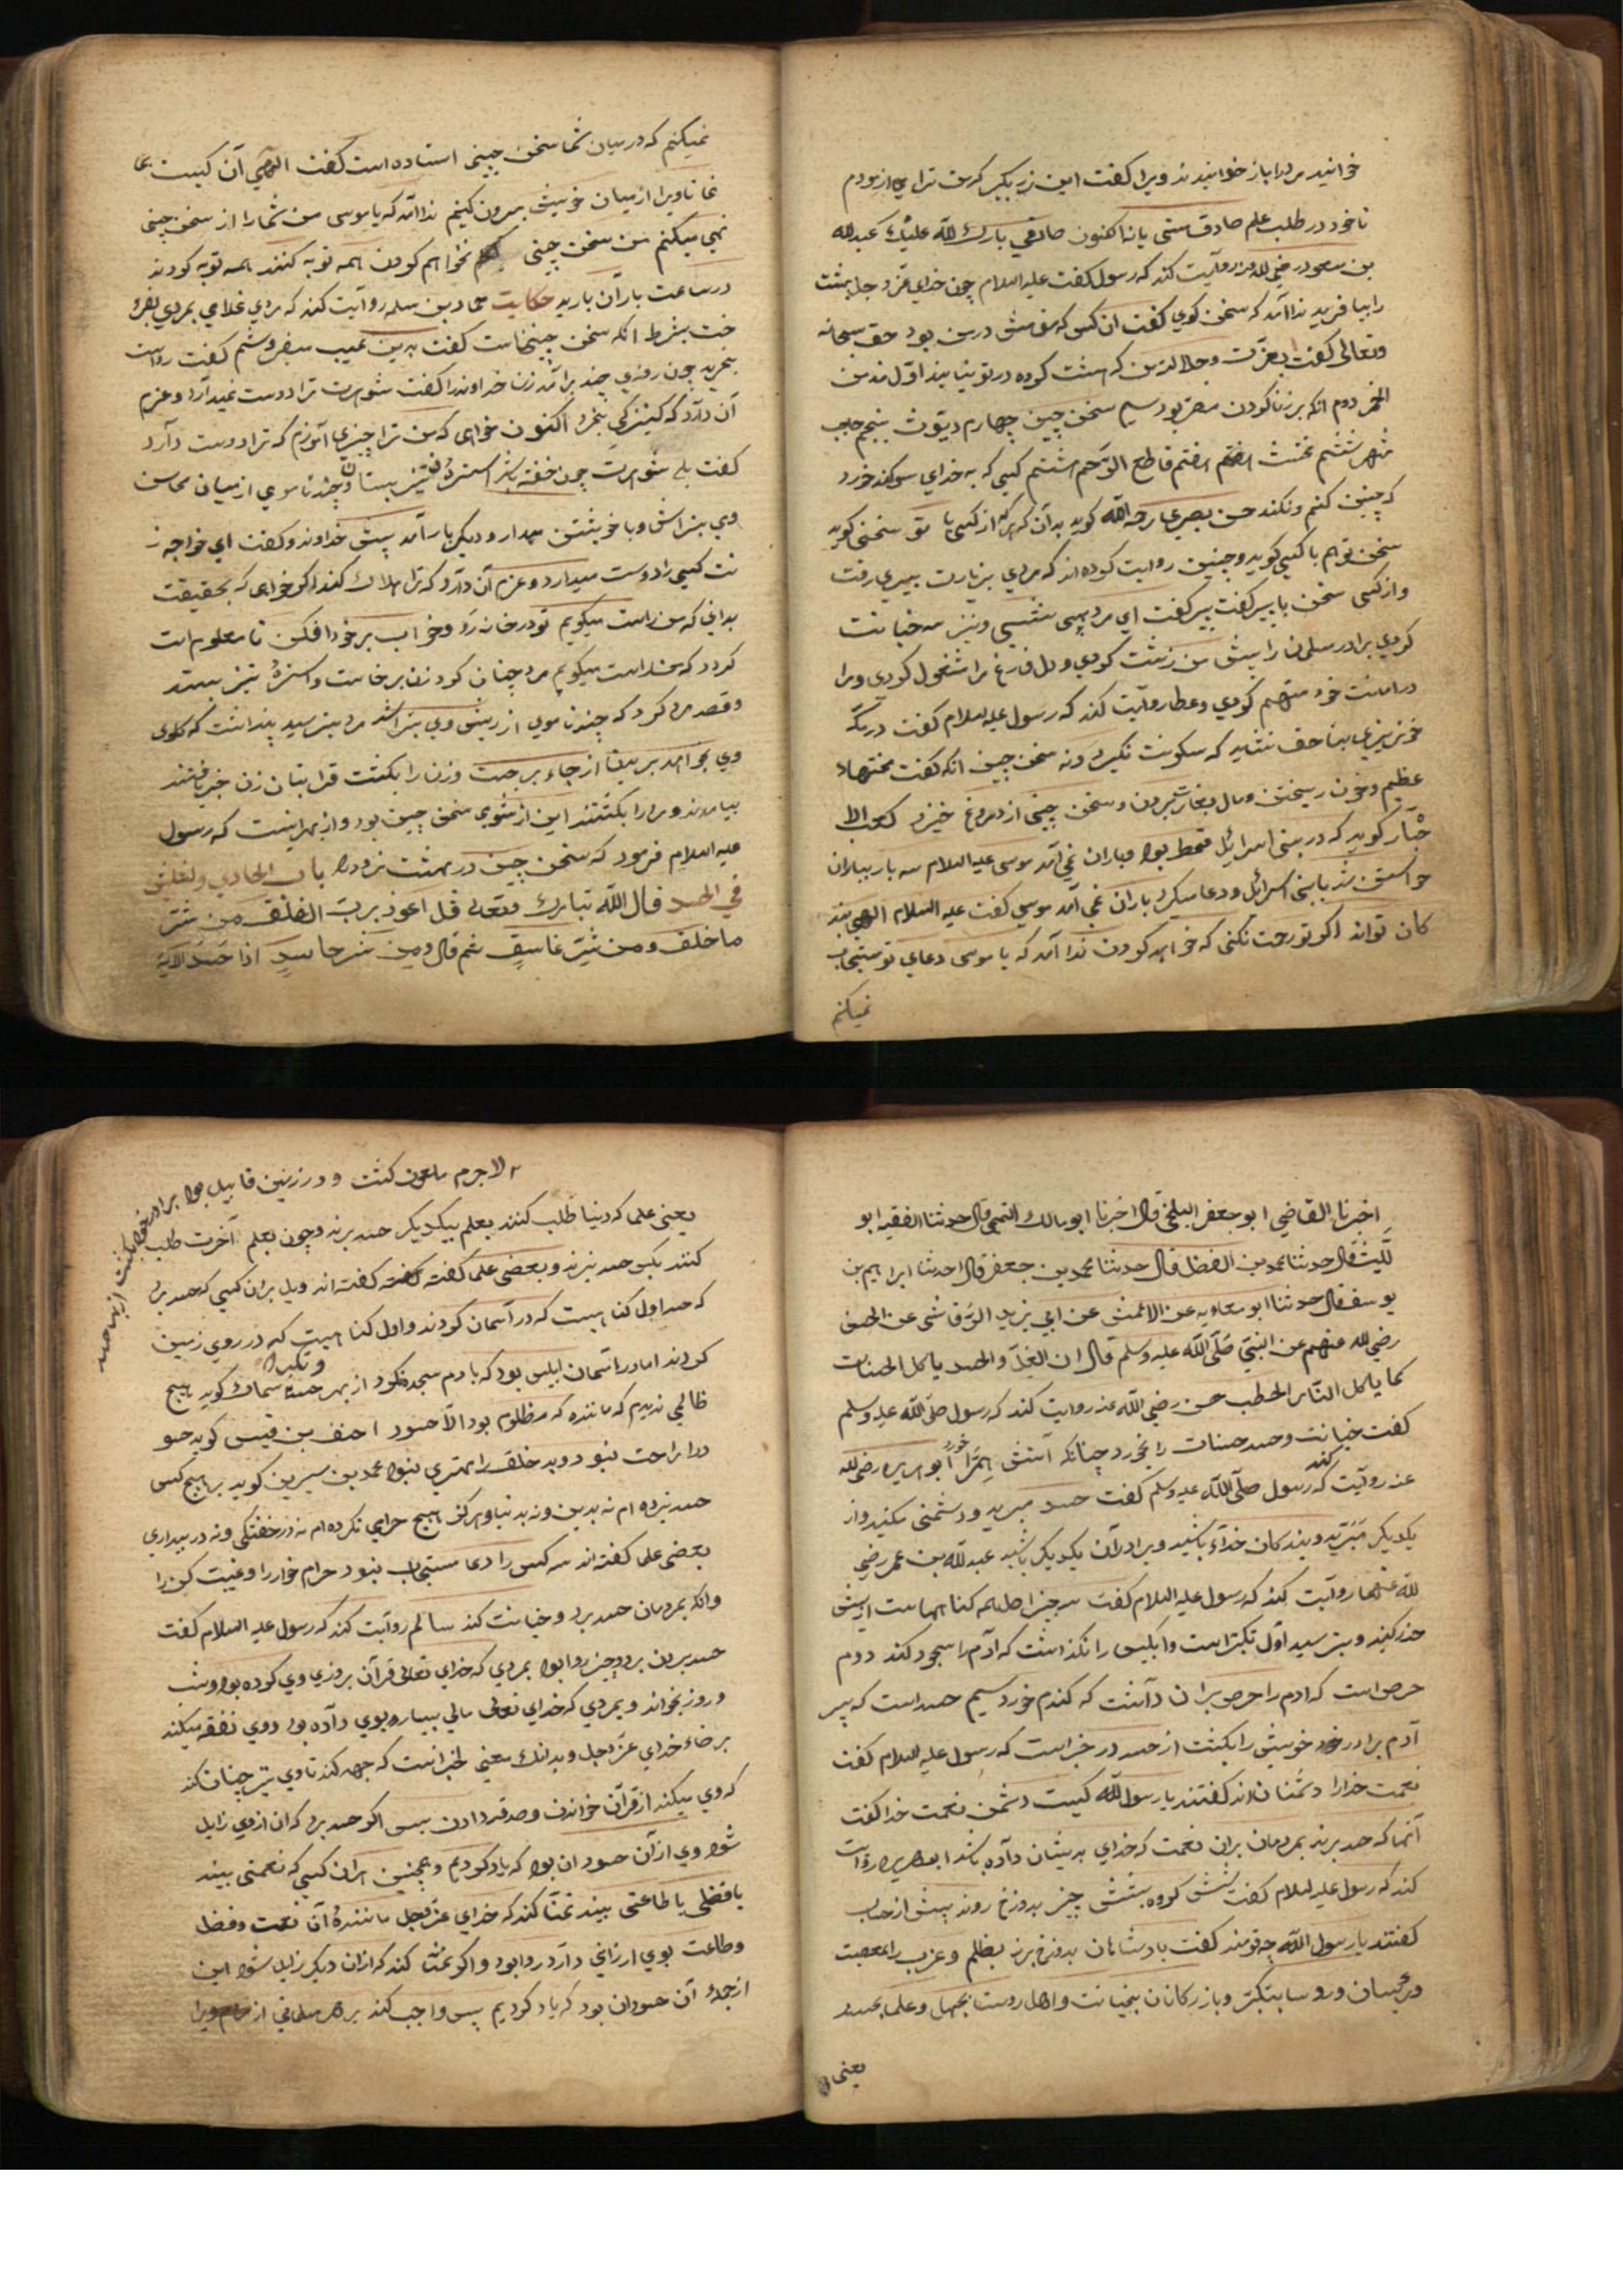 خوانید مردرا باز خواندند ویرا گفت این زر بگیر که من ترا می ازمودم
تا خود در طلب علم صادق هستی یا نه اکنون صادقی بارك الله علیك عبدالله
بن مسعود رضی الله عنه روایت کند که رسول گفت علیه السلام چون خدای عزّ و جل بهشت
را بیافرید ندا آمد که سخن گوی گفت ان کس که در من بود حق سبحانه
وتعالی گفت بعزّت و جلال من که هشت گروه در تو نیایند اوّل مدمن
الخمر دوم انکه بر زنا کردن مصر بود سیم سخن چین چهارم دیّوث پنجم حاجب
ششم مخنث هفتم قاطع الرّحم هشتم کسی که به خدای سوگند خورد
که چنین کنم و نکند حسن بصری رحمه الله گوید بدان که هرکه از کسی با تو سخنی گوید
سخن تو هم با کسی گوید و چنین روایت کرده اند که مردی بزیارت پیری رفت
و از کسی سخن با پیر گفت پیر گفت ای مرد سه خیانت
کردی برادر مسلمان را پیش من زشت کردی و دل فارغ مرا مشغول کردی و مرا
در امانت خود متهم کردی و عطا روایت کند که رسول علیه السلام گفت در مکّه
خون ریزی بناحق نشاید که سکونت نگیرد ونه سخن چین انکه گفت
عظیم و خون ریختن و مال بغارت بردن و سخن چینی از دروغ خیزد کعب الا
حبّار گوید که در بنی اسرائیل قحط بود و باران نمی آمد موسی علیه السلام سه بار بباران
خواستن شد با بنی اسرائیل و دعا میکرد باران نمی آمد موسی گفت علیه السلام الهی بند
گان تواند اگر تو رحمت نکنی که خواهد کردن ندا آمد که یا موسی دعای تو مستجاب
نمیکنم
نمیکنم که در میان شما سخن چینی استاده است گفت الهی آن کیست بما
نما تا ویرا از میان خویش بیرون کنیم ندا آمد که یا موسی من شما را از سخن چینی
نهی میکنم من سخن چینی نخواهم کردن همه توبه کنند همه توبه کردند
در ساعت باران بارید حکایت حماد بن سلمه روایت کند که مردی غلامی بمردی بفرو
خت بشرط انکه سخن چین است گفت بدین عیب بفروشم گفت رواست
بخرید چون روزی چند برآمد زن خداوند را گفت شوهرت ترا دوست نمیدارد و عزم
آن دارد که کنیزکی بخرد اکنون خواهی که من ترا چیزی آموزم که ترا دوست دارد
گفت بلی شوهرت چون خفته باشد استرهٔ تیز بستان و چند تا موی از میان محاسن
وی بتراش و با خویشتن میدار و دیگر بار آمد پیش خداوند و گفت ای خواجه ز
نت کسی را دوست میدارد و عزم آن دارد که ترا هلاك کند اگر خواهی که بحقیقت
بدانی که من راست میگویم تو در خانه رو و خواب بر خود افکن تا معلومت
گردد که من راست میگویم مرد چنان کرد زن برخاست و استرهٔ تیز بستد
و قصد مرد کرد که چند تا موی از ریش وی بتراشد مرد بترسید پنداشت که گلوی
وی بخواهد برید از جای برجست و زن را بکشت قرابتان زن خبر یافتند
بیامدند و مرد را بکشتند این از شومی سخن چین بود و از بهر اینست که رسول
علیه السلام فرمود که سخن چین در بهشت نرود باب الحادی والثلثین
فی الحسد قال الله تبارك وتعالی قل اعوذ برب الفلق من شر
ما خلق ومن شر غاسق ثم قال ومن شر حاسد اذا حسد الآیة
اخبرنا القاضی ابو جعفر البلخی قال اخبرنا ابو مالك التمیمی قال حدثنا الفقیه ابو
للیث قال حدثنا محمد بن الفضل قال حدثنا محمد بن جعفر قال حدثنا ابراهیم بن
یوسف قال حدثنا ابو معاویه عن الاعمش عن ابی یزید الرّقاشی عن الحسن
رضی الله عنهم عن النبیّ صلی الله علیه وسلم قال ان الغلّ والحسد یاکل الحسنات
کما یاکل النار الحطب حسن رضی الله عنه روایت کند که رسول صلی الله علیه وسلم
گفت خیانت و حسد حسنات را بخورد چنانکه آتش هیزم را خورد ابو هریره رضی الله
عنه روایت کند که رسول صلی الله علیه وسلم گفت حسد مبرید و دشمنی مکنید و از
یکدیگر مبرید و بندگان خدای باشید و برادران یکدیگر باشید عبدالله بن عمر رضی
لله عنهما روایت کند که رسول علیه السلام گفت سه چیز اصل همه گناهاست ازیشان
حذر کنید و بترسید اوّل تکبر است و ابلیس را نگذاشت که آدم را سجود کند دوم
حرص است که ادم را حرص بران داشت که گندم خورد سیم حسد است که پسر
آدم برادر خود خویش را بکشت از حسد در خبر است که رسول علیه السلام گفت
نعمت خدا را دشمنان اند گفتند یا رسول الله کیست دشمن نعمت خدا گفت
آنها که حسد برند بمردمان بران نعمت که خدای بدیشان داده باشد ابو هریره روایت
کند که رسول علیه السلام گفت شش گروه بشش چیز بدوزخ روند پیش از حساب
گفتند یا رسول الله چه قومند گفت پادشاهان بدوزخ برند بظلم و عرب را بعصبیت
و رؤسا بتکبّر و بازرگانان بخیانت و اهل روستا بجهل و علما بحسد
یعنی
لاجرم ملعون گشت و در زمین قابیل بود برادر خود را بکشت از بهر حسد
یعنی علما که دنیا طلب کنند بعلم بیکدیگر حسد برند و چون بعلم آخرت طلب
کنند بکس حسد نبرند و بعضی علما گفته گفته اند ویل بران کسی که حسد برد
که حسد اول گناهیست که در آسمان کردند و اول گناهیست که در روی زمین
کردند اما در آسمان ابلیس بود که بادم سجده نکرد از بهر حسد و تکبر سماك گوید هیچ
ظالمی ندیدم که مانندهٔ مظلوم بود الّا حسود احنف بن قیس گوید حسو
د را راحت نبود و بد خلق را مهتری نبود محمد بن سیرین گوید بر هیچ کس
حسد نبرده ام نه بدین و نه بدنیا و هرگز هیچ حرامی نکرده ام نه در خفتگی ونه در بیداری
بعضی علما گفته اند سه کس را دعا مستجاب نبود حرام خوار را و غیبت کن را
وانکه بمردمان حسد برد و خیانت کند سالم روایت کند که رسول علیه السلام گفت
حسد بردن بر دو چیز روا بود بمردی که خدای تعالی قرآن بروزی وی کرده بود و شب
و روز بخواند و بمردی که خدای تعالی مالی بسیار بوی داده بود و وی نفقه میکند
برضاء خدای عزّ وجل و بدانك معنی خبر انست که جهد کند تا وی نیز چنان کند
که وی میکند از قرآن خواندن و صدقه دادن پس اگر حسد برد که ان از وی زایل
شود وی از آن حسودان بود که یاد کردیم و همچنین هران کسی که نعمتی بیند
یا فضلی یا طاعتی بیند تمنّا کند که خدای عزّ وجل مانندهٔ آن نعمت و فضل
و طاعت بوی ارزانی دارد روا بود و اگر تمنّا کند که ازان دیگر زایل شود این
از جملهٔ آن حسودان بود که یاد کردیم پس واجب کند بر هر مسلمانی از